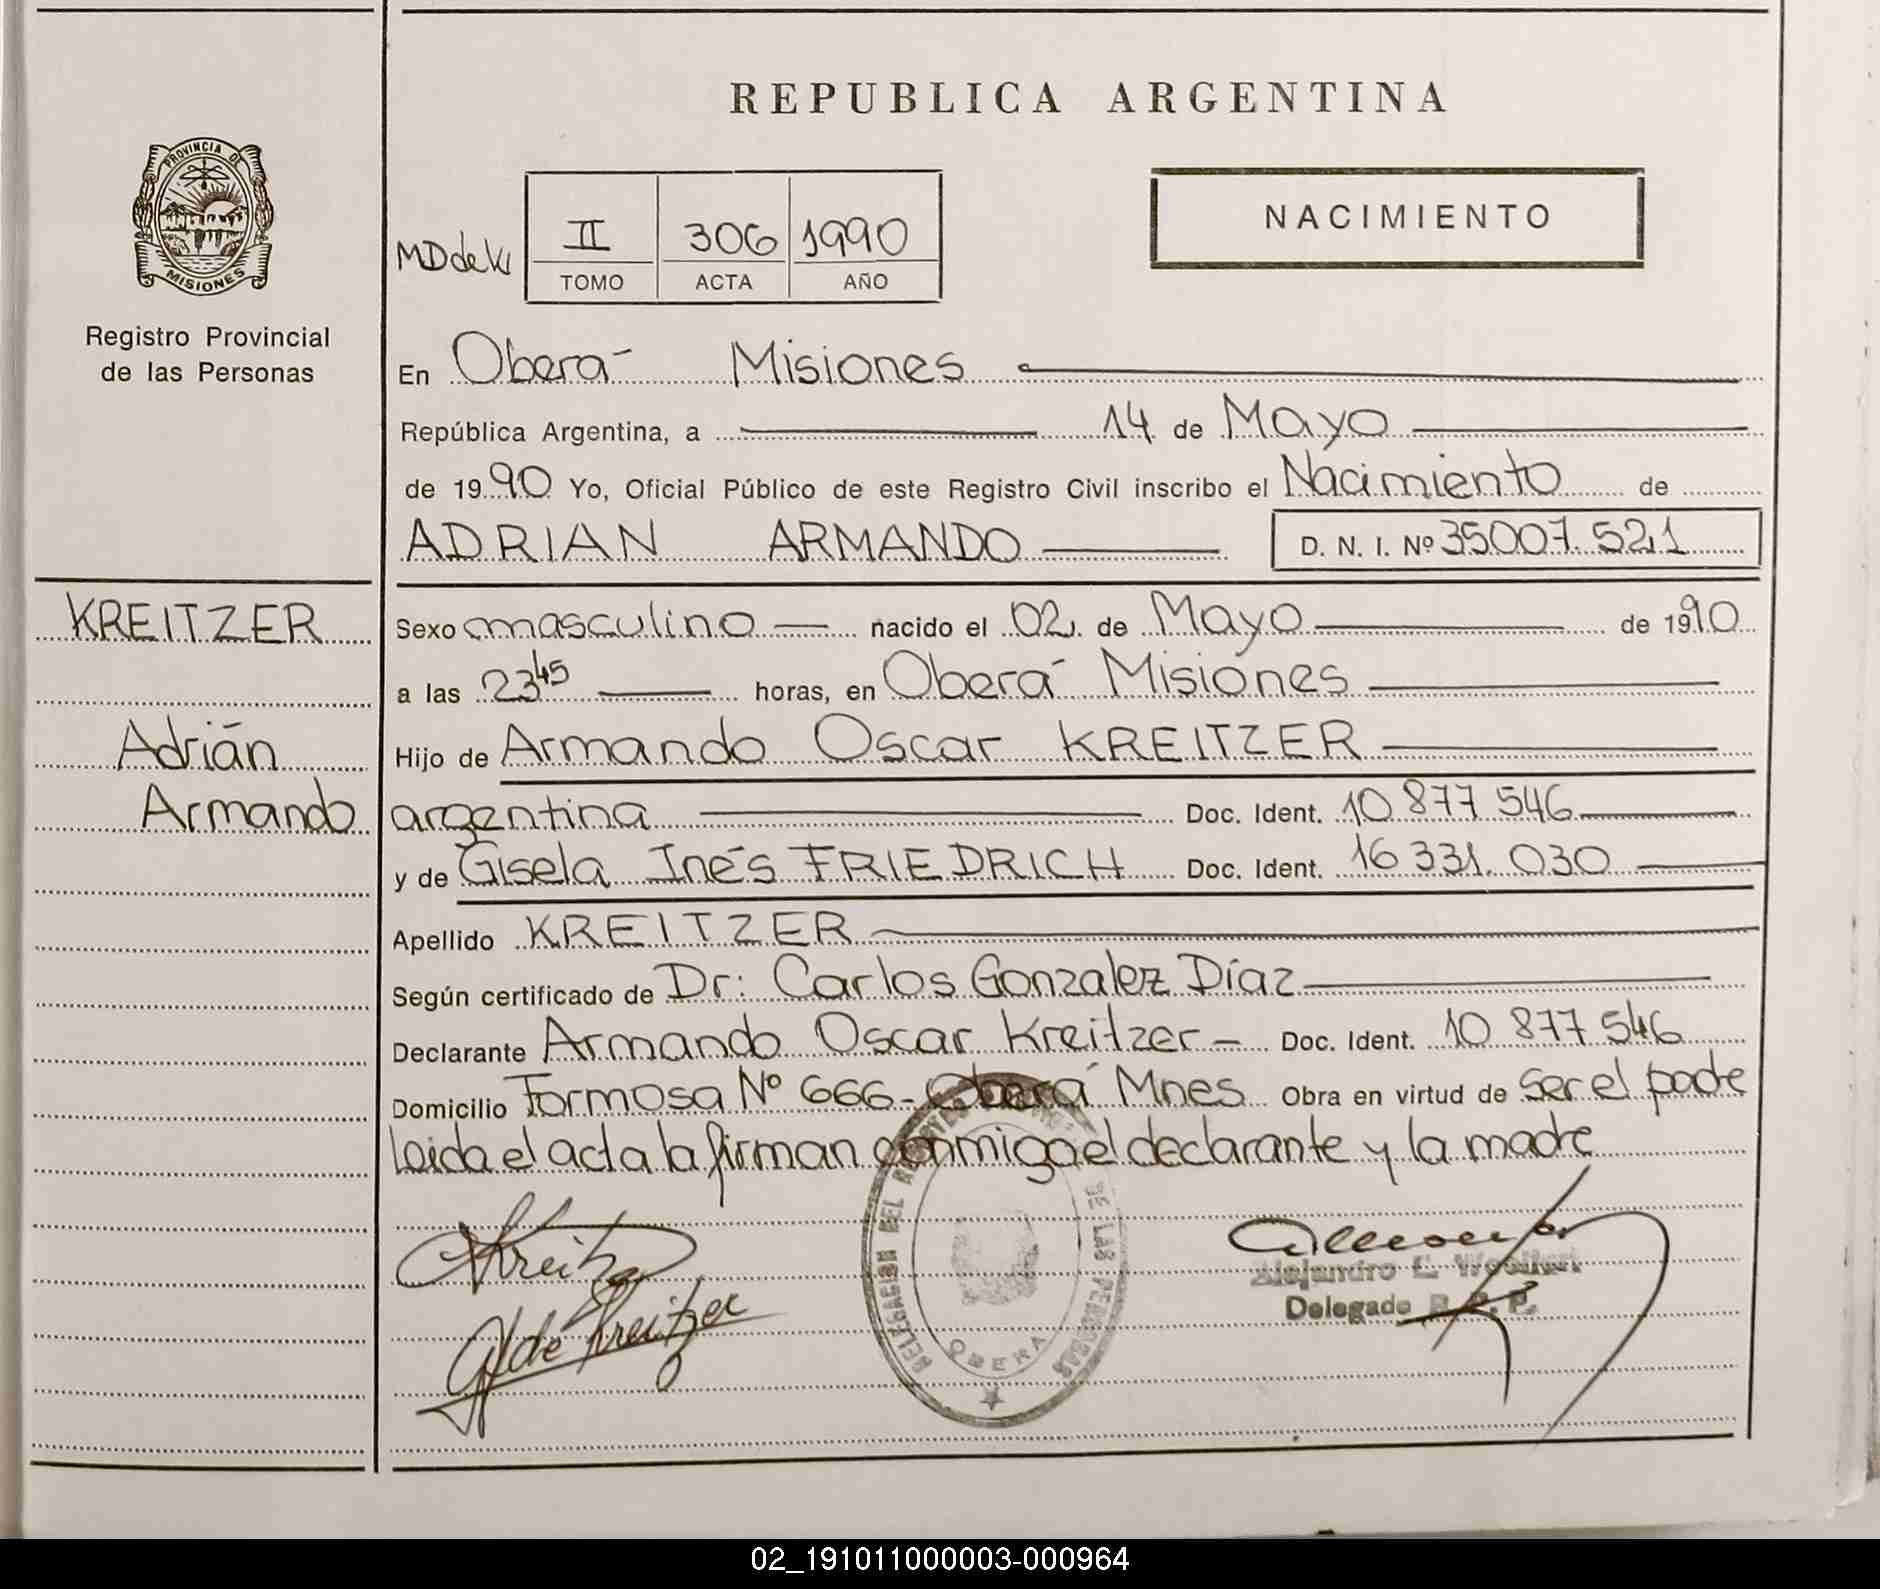 REPUBLICA ARGENTINA
PROVINCIA DE
MISIONES
Registro Provincial
de las Personas
NACIMIENTO
II 306 1990
TOMO ACTA AÑO
En Oberá Misiones
República Argentina, a 14 de Mayo
de 1990 Yo, Oficial Público de este Registro Civil inscribo el Nacimiento de
ADRIAN ARMANDO D. N. I. Nº 35007.521
KREITZER
Adrián
Armando
Sexo masculino nacido el 02 de Mayo de 1990
a las 23 45 horas, en Oberá Misiones
Hijo de Armando Oscar KREITZER
argentina Doc. Ident. 10 877 546
y de Gisela Inés FRIEDRICH Doc. Ident. 16 331. 030
Apellido KREITZER
Según certificado de Dr: Carlos Gonzalez Díaz
Declarante Armando Oscar Kreitzer - Doc. Ident. 10 877 546
Domicilio Formosa Nº 666 - Oberá Mnes Obra en virtud de ser el padre
leida el acta la firman conmigo el declarante y la madre
DELEGACION DEL DE LAS PERSONAS
OBERA
Kreitzer
de Kreitzer
Alejandro E.
Delegado R. P. P.
02_191011000003-000964